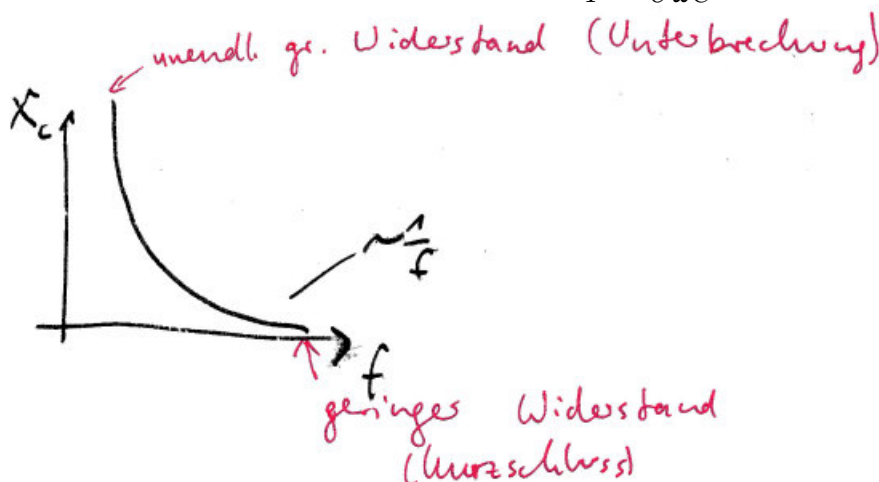 unendl. gr. Widerstand (Unterbrechung)
X_c
~1/f
f
geringer Widerstand
(Kurzschluss)